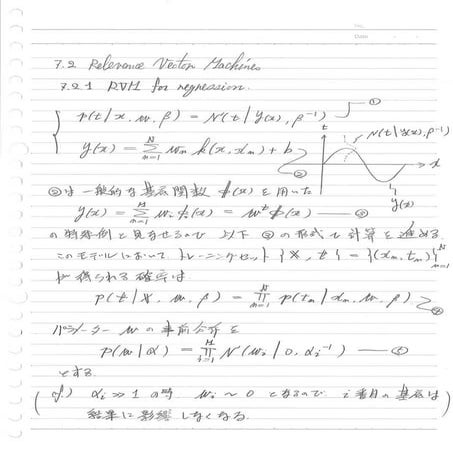 7.2 Relevance Vector Machines
7.2.1 RVM for regression.
p(t|x, w, β) = N(t|y(x), β⁻¹) ①
y(x) = Σ_{n=1}^{N} w_n k(x, x_n) + b ②
t
N(t|y(x), β⁻¹)
x
y(x)
②は一般的な基底関数 φ(x) を用いた
y(x) = Σ_{i=1}^{M} w_i φ_i(x) = wᵗ φ(x) ― ③
の特殊例と見なせるので 以下 ③の形式で計算を進める.
このモデルにおいて, トレーニングセット {X, t} = {(x_n, t_n)}_{n=1}^{N}
が得られる確率は
p(t|X, w, β) = Π_{n=1}^{N} p(t_n|x_n, w, β) ④
パラメーター w の事前分布を
p(w|α) = Π_{i=1}^{M} N(w_i|0, α_i⁻¹) ― ⑤
とする.
α_i ≫ 1 の時 w_i ~ 0 となるので i番目の基底は
結果に影響しなくなる.